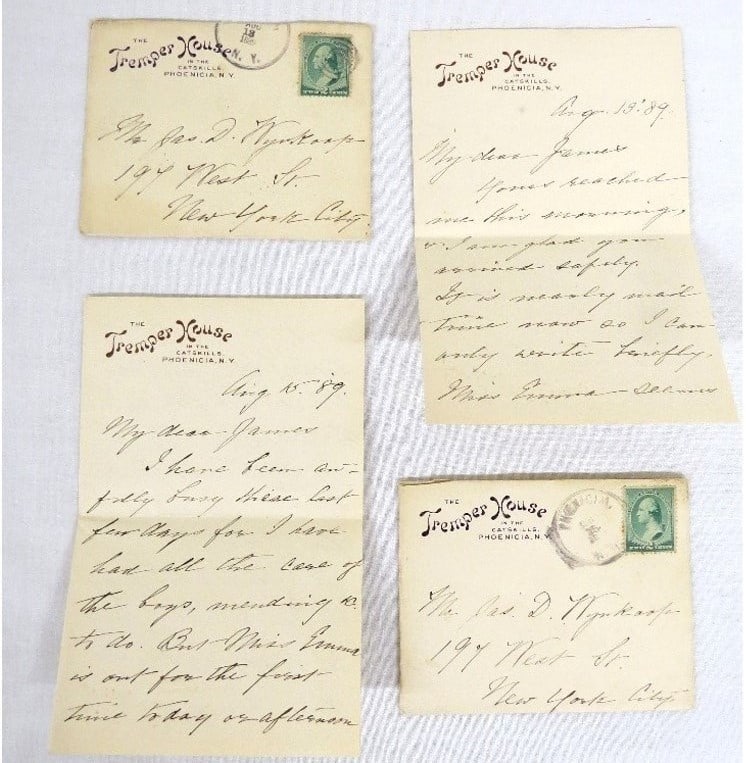 THE
Tremper House
IN THE
CATSKILLS,
PHOENICIA, N.Y.
13
N. Y.
TWO CENTS
Mr Jas. D. Wynkoop
197 West St.
New York City.
THE
Tremper House
IN THE
CATSKILLS,
PHOENICIA, N.Y.
Aug. 13" 89.
My dear James
Yours reached
me this morning,
& I am glad you
arrived safely.
It is nearly mail
time now so I can
only write briefly.
Miss Emma seems
THE
Tremper House
IN THE
CATSKILLS,
PHOENICIA, N.Y.
Aug 15" 89.
My dear James
I have been aw-
fully busy these last
few days for I have
had all the care of
the boys, mending &c.
to do. But Miss Emma
is out for the first
time today or afternoon
THE
Tremper House
IN THE
CATSKILLS,
PHOENICIA, N.Y.
PHOENICIA,
Mr Jas. D. Wynkoop
197 West St.
New York City.